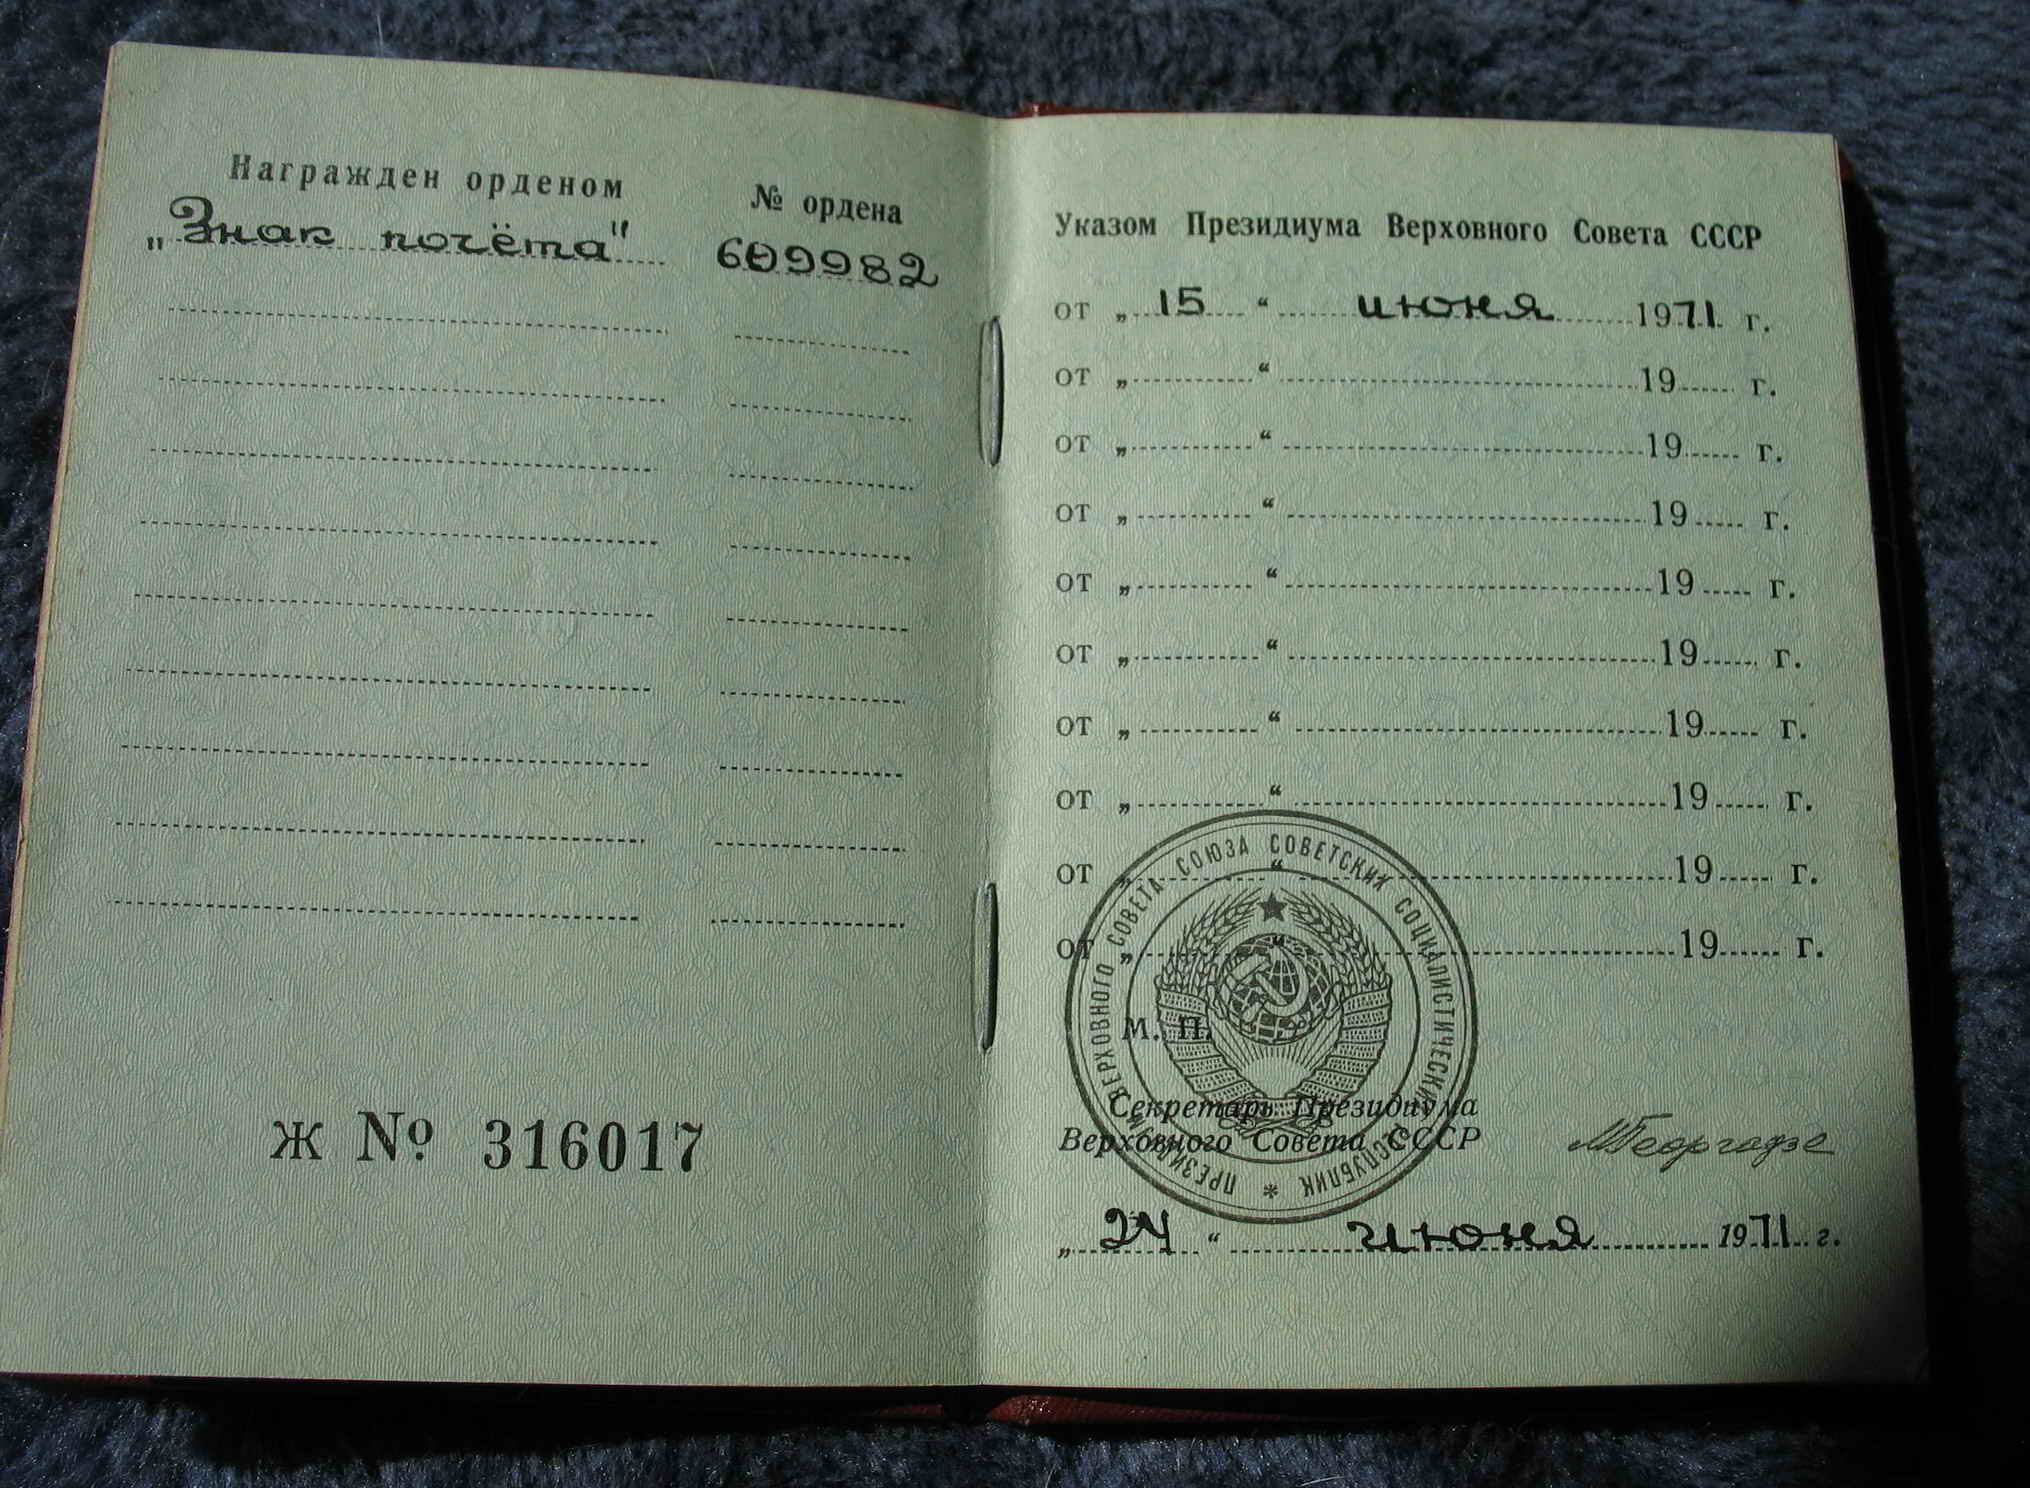 Награжден орденом
№ ордена
„Знак почёта"
609982
Ж № 316017
Указом Президиума Верховного Совета СССР
от „15“ июня 1971 г.
от „ “ 19 г.
от „ “ 19 г.
от „ “ 19 г.
от „ “ 19 г.
от „ “ 19 г.
от „ “ 19 г.
от „ “ 19 г.
от „ “ 19 г.
от „ “ 19 г.
М. П.
ПРЕЗИДИУМ ВЕРХОВНОГО СОВЕТА СОЮЗА СОВЕТСКИХ СОЦИАЛИСТИЧЕСКИХ РЕСПУБЛИК *
Секретарь Президиума
Верховного Совета СССР
МГеоргадзе
„24“ июня 1971 г.